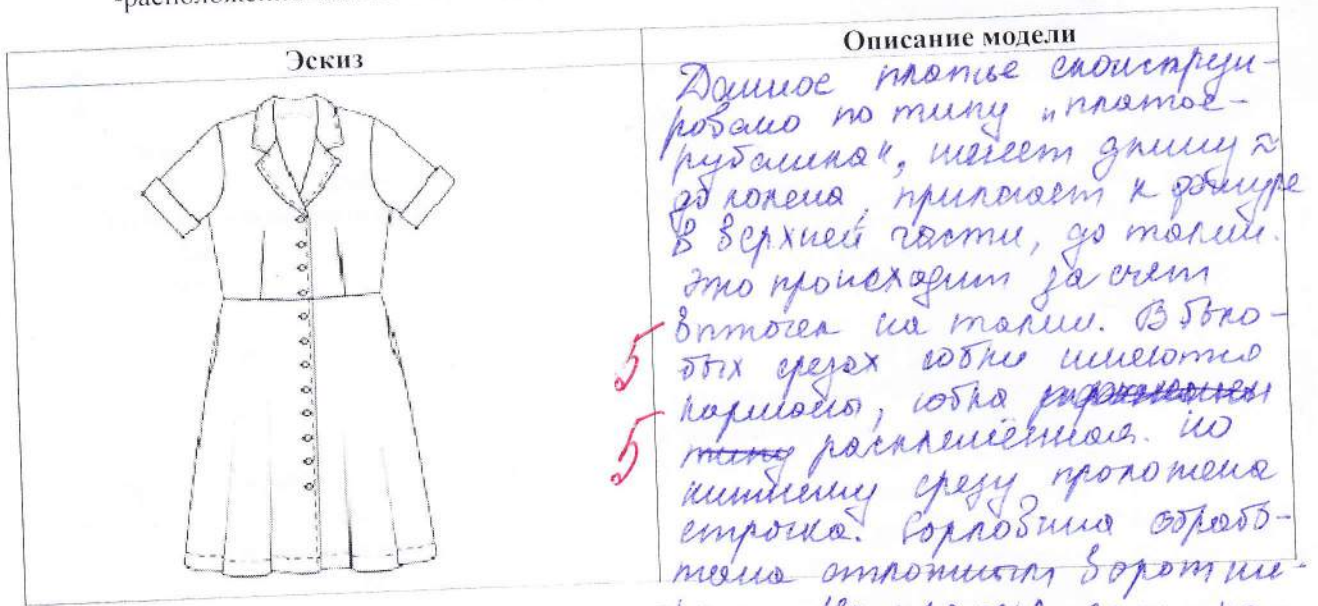 -расположение
Эскиз
Описание модели
Данное платье сконструи-
ровано по типу „платье-
рубашка", имеет длину ≈
до колена, прилегает к фигуре
в верхней части, до талии.
Это происходит за счёт
вытачек на талии. В боко-
вых срезах юбки имеются
карманы, юбка
расклешённая. По
нижнему срезу проложена
строчка. Горловина обрабо-
тана отложным воротни-
5
5